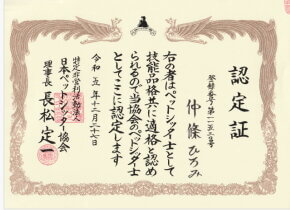 認定証
仲條ひろみ
右の者はペットシッター士として
技能品格共に適格と認め
られるので当協会のペットシッター士
としてここに認定します
令和五年十二月二十七日
特定非営利活動法人
日本ペットシッター協会
理事長 長松定一